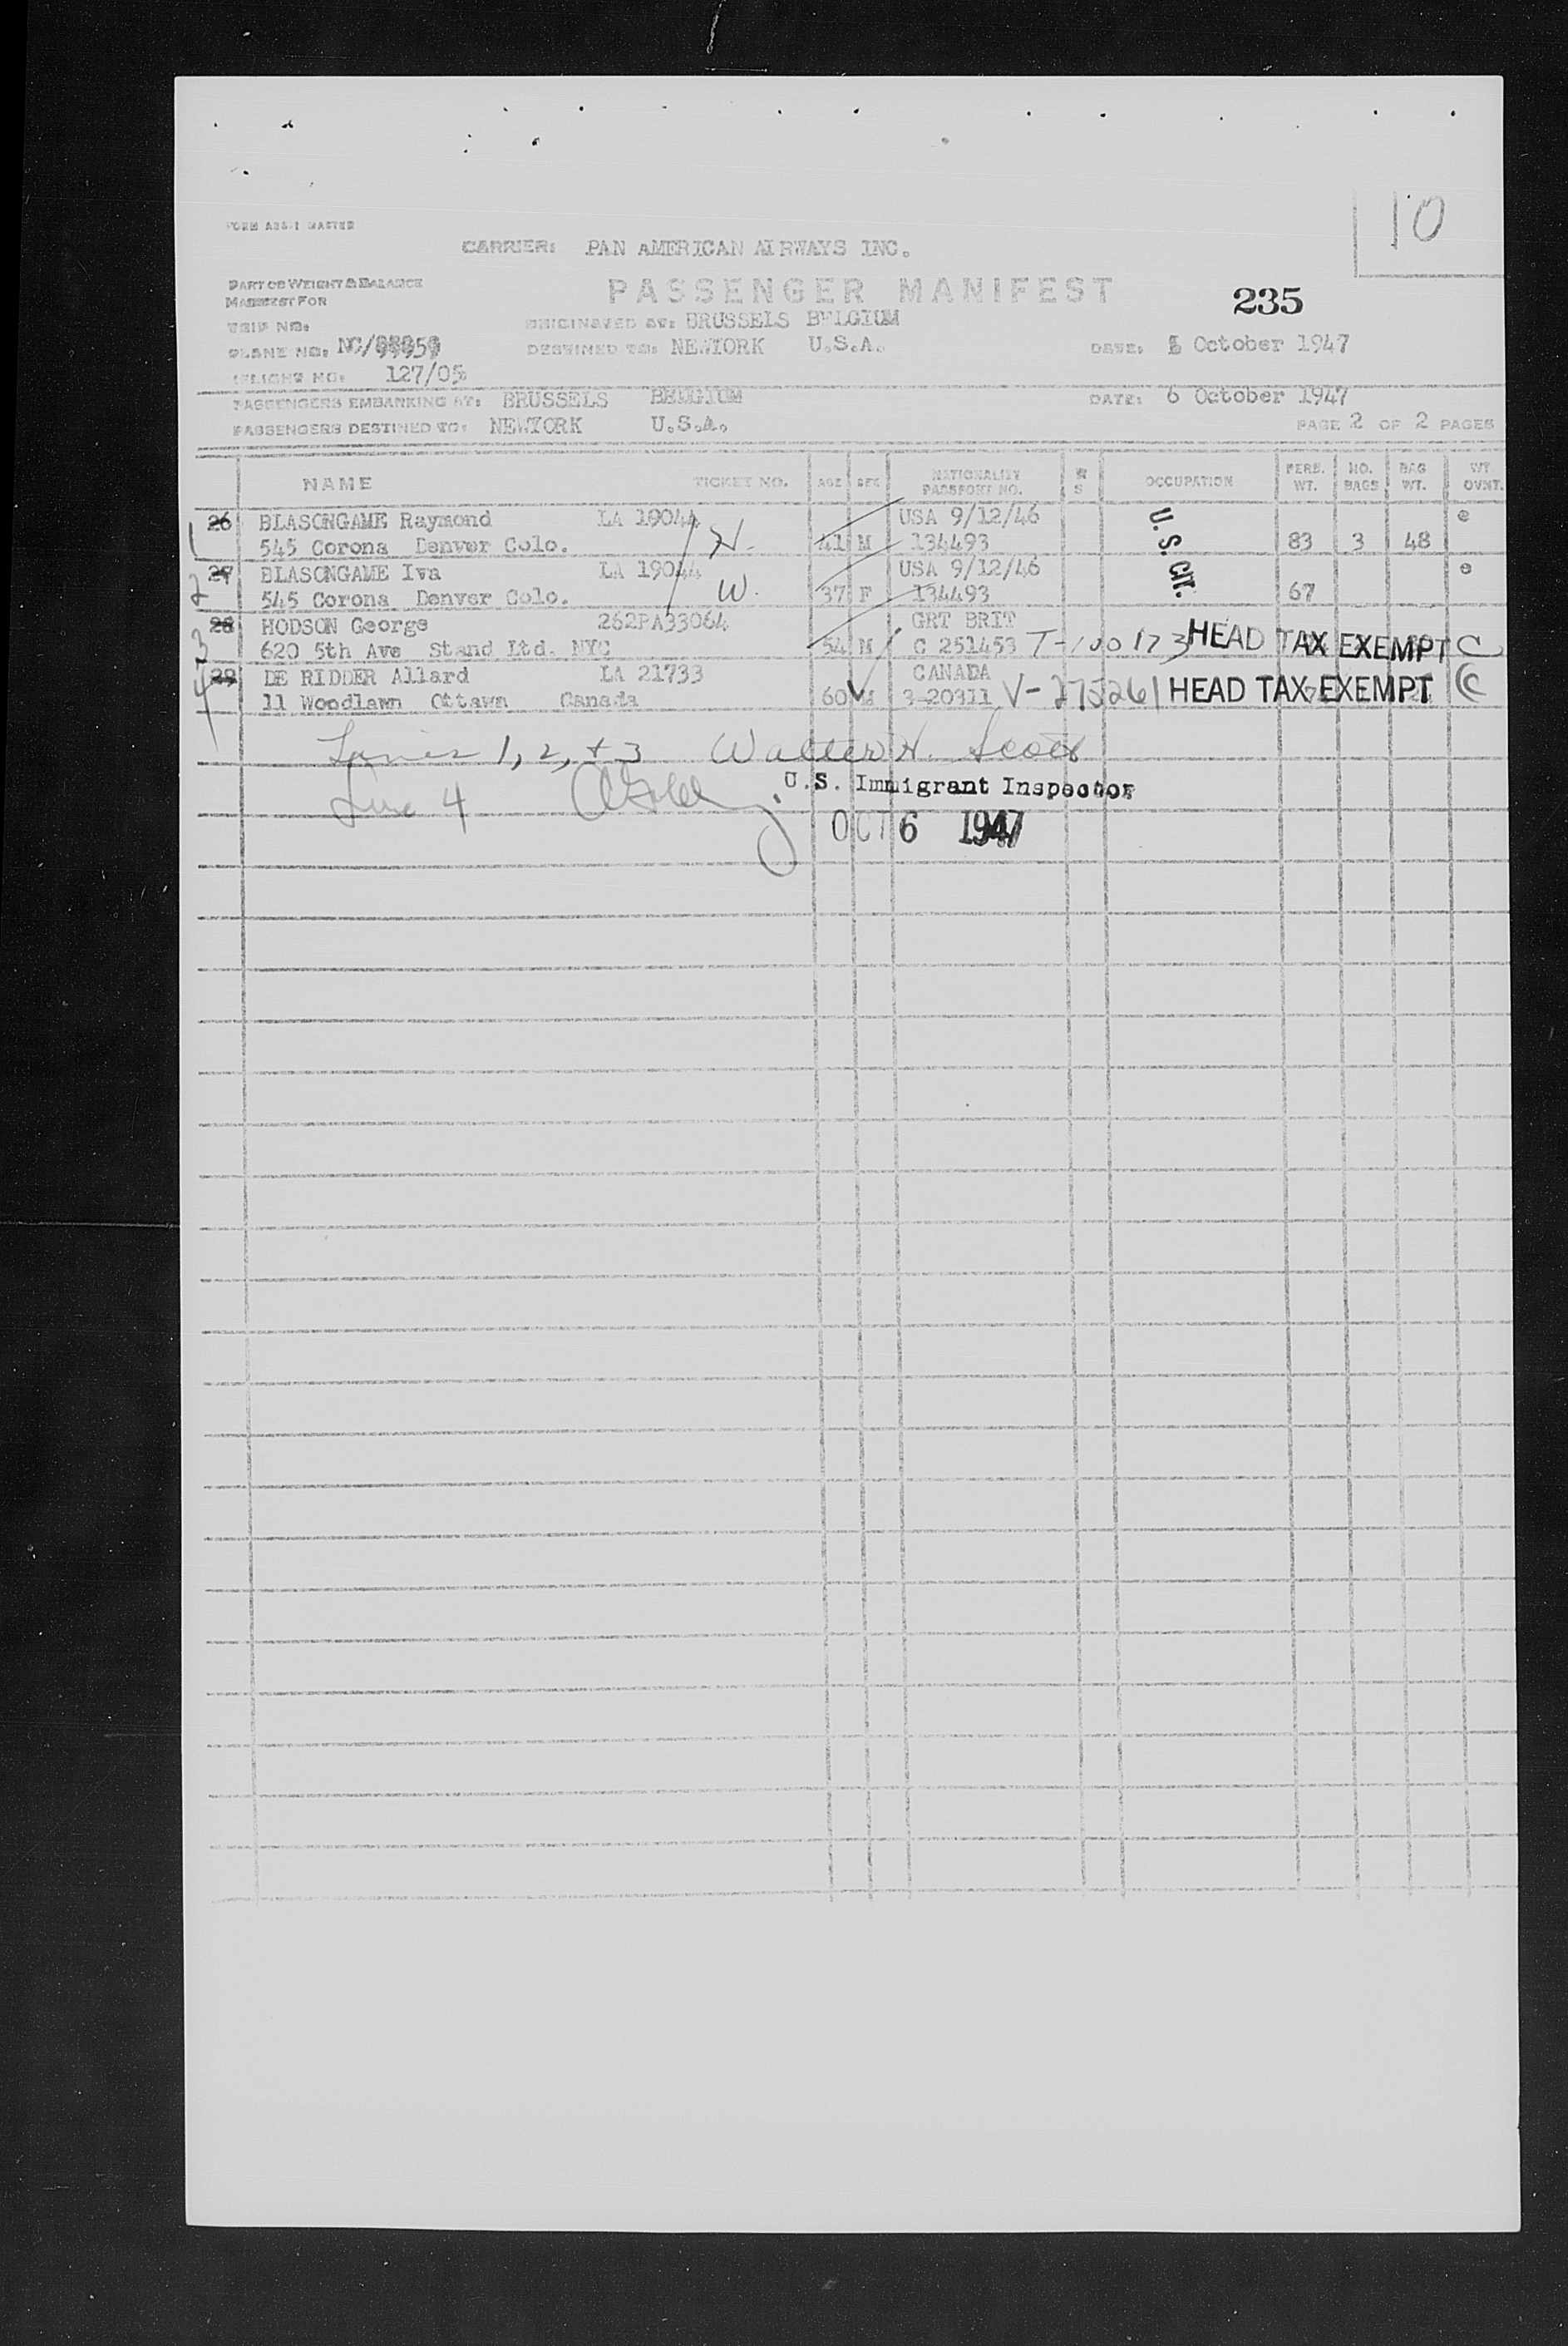 10
CARRIER: PAN AMERICAN AIRWAYS INC.
PART OF WEIGHT & BALANCE
MANIFEST FOR
PASSENGER MANIFEST
235
TRIP NO:
ORIGINATED AT: BRUSSELS BELGIUM
PLANE NO: NC/
DESTINED TO: NEWYORK U.S.A.
DATE: October 1947
FLIGHT NO: 127/05
PASSENGERS EMBARKING AT: BRUSSELS BELGIUM
DATE: 6 October 1947
PASSENGERS DESTINED TO: NEWYORK U.S.A.
PAGE 2 OF 2 PAGES
NAME TICKET NO. AGE SEX NATIONALITY PASSPORT NO. OCCUPATION PERS. WT. NO. BAGS BAG WT. WT. OVNT.
1 26 BLASONGAME Raymond LA 19044 USA 9/12/46 U.S. CIT.
545 Corona Denver Colo. H. 41 M 134493 83 3 48
2 27 BLASONGAME Iva LA 19044 USA 9/12/46
545 Corona Denver Colo. W. 37 F 134493 67
3 28 HODSON George 262PA33064 GRT BRIT
620 5th Ave Stand Ltd. NYC 54 M C 251453 T-100173 HEAD TAX EXEMPT C
4 29 DE RIDDER Allard LA 21733 CANADA
11 Woodlawn Ottawa Canada 60 M 3-20311 V-275261 HEAD TAX EXEMPT C
Lines 1, 2, + 3 Walter H. Scott
Line 4
U.S. Immigrant Inspector
OCT 6 1947